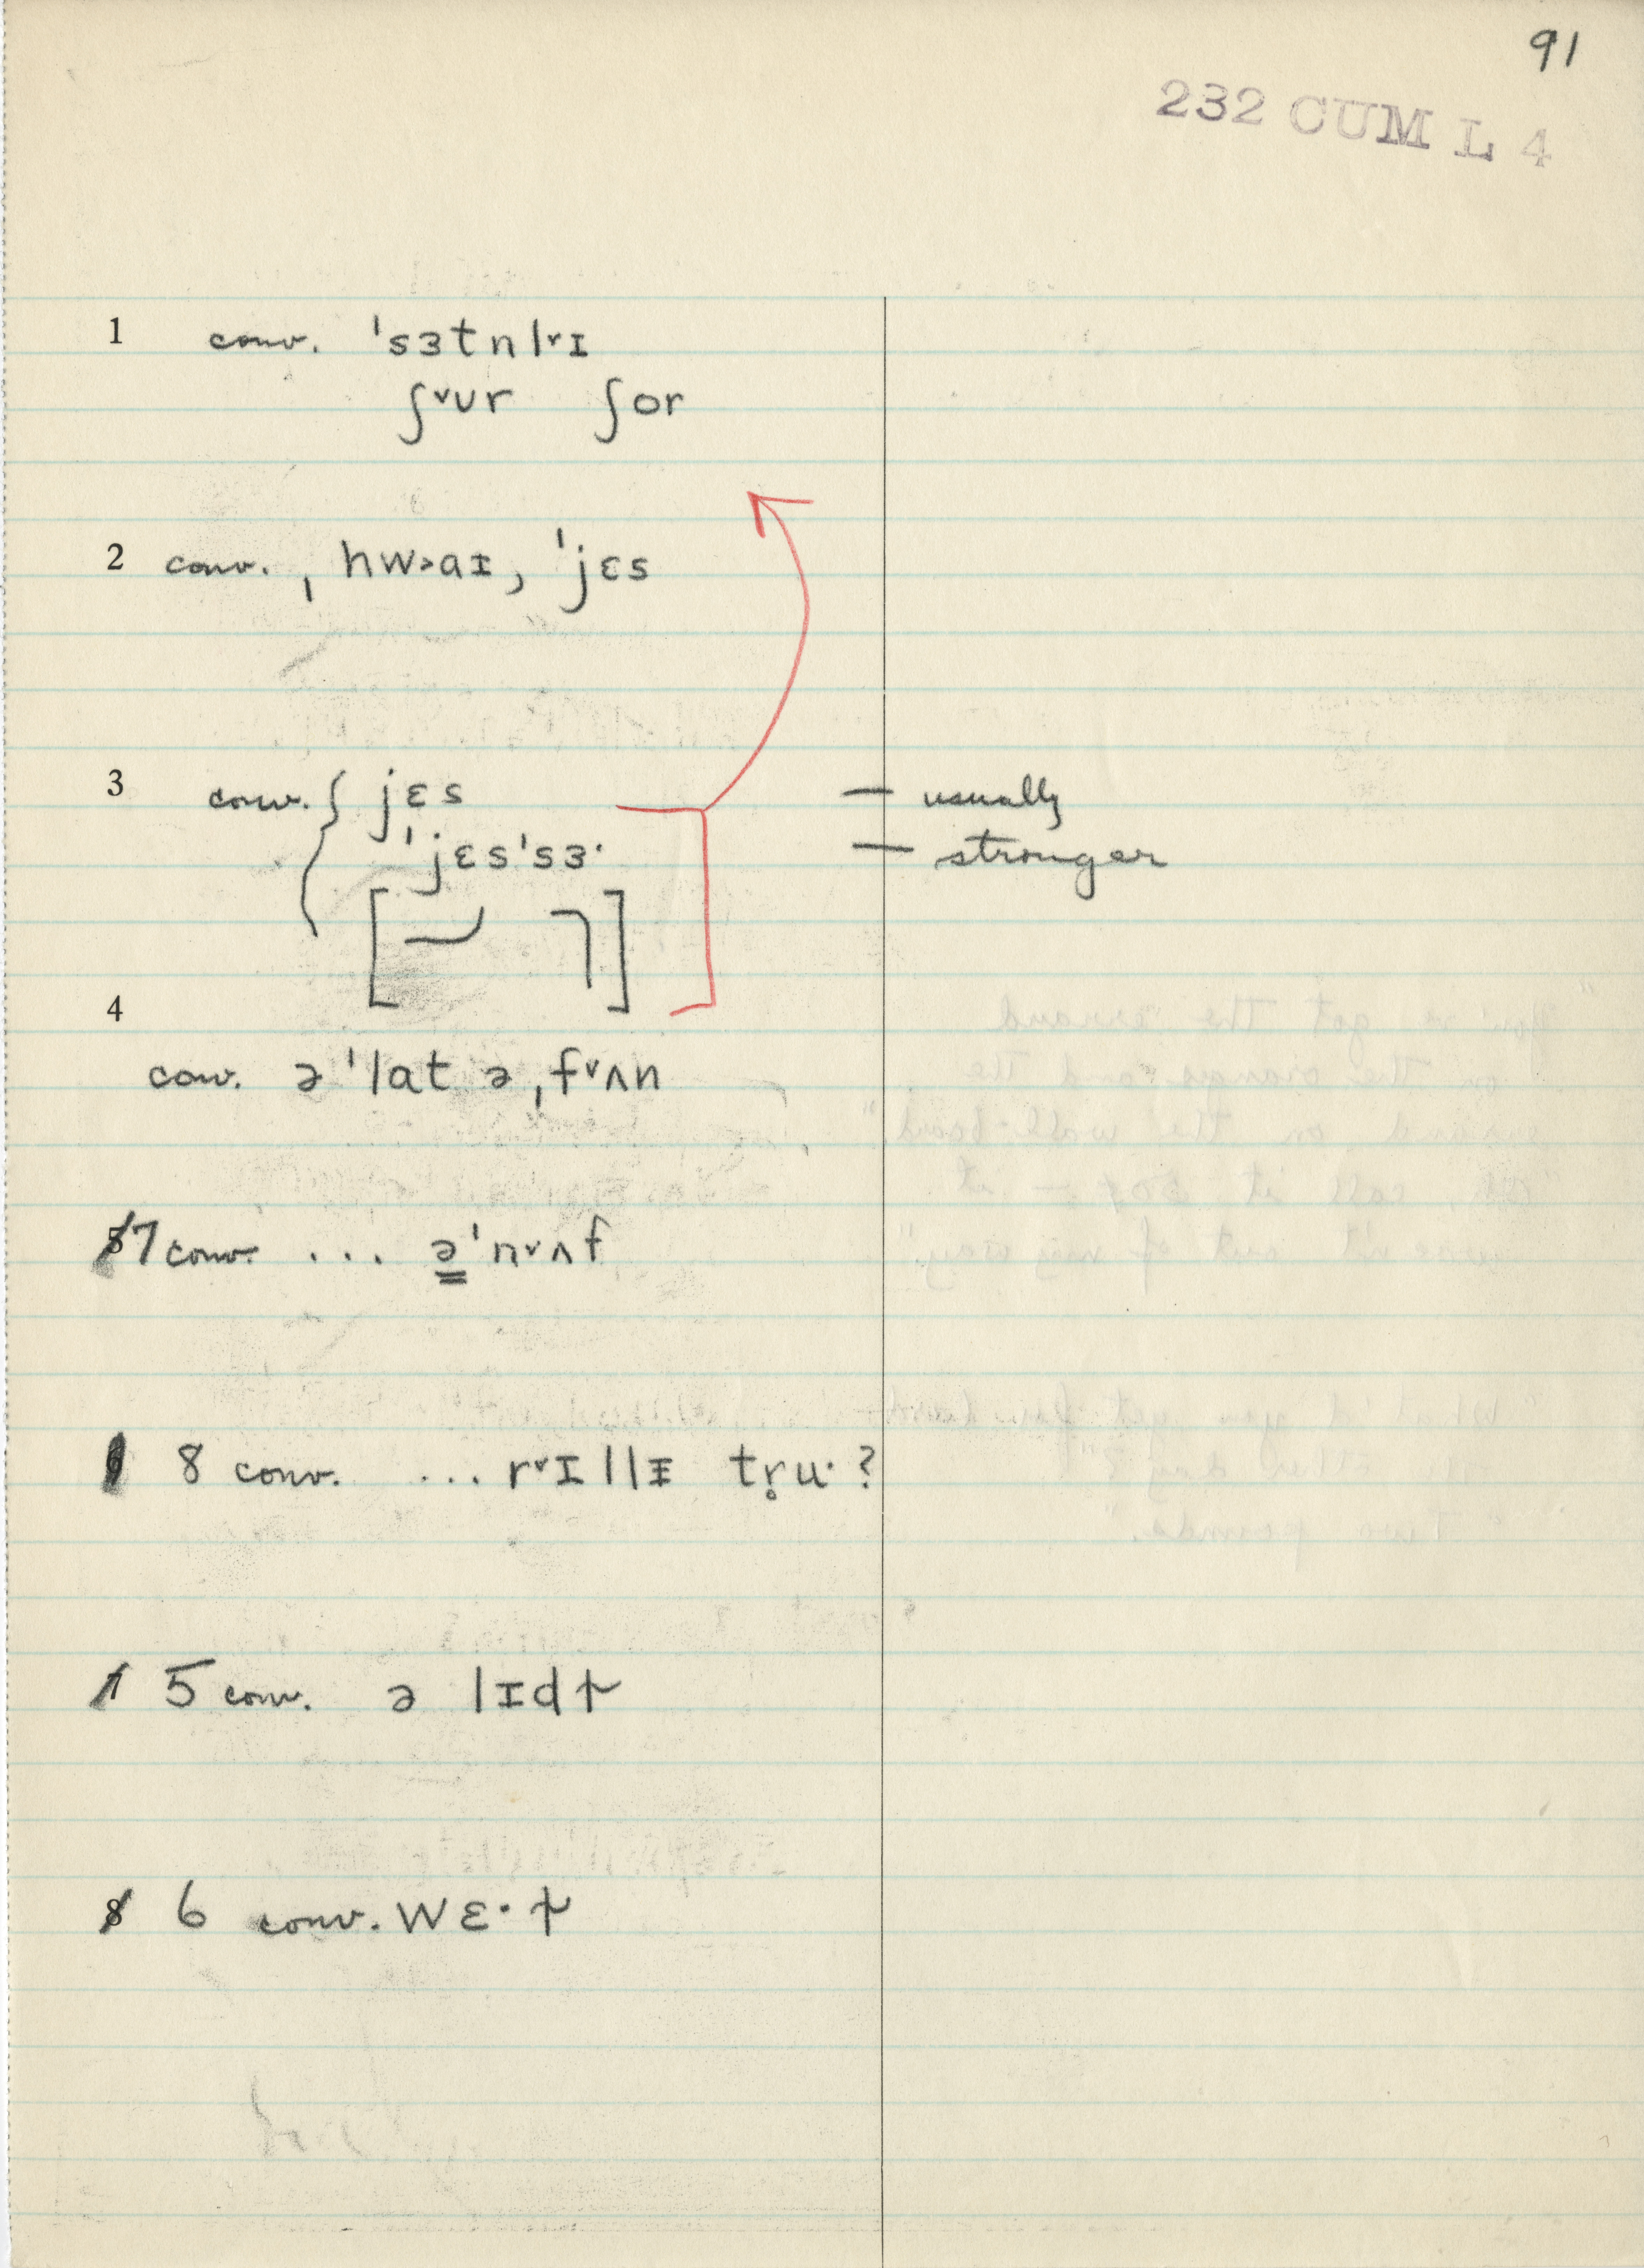 91
232 CUM L 4
1 conv. ˈsɜtnl˅ɪ
ʃ˅ʊr ʃor
2 conv. ˌhw˃aɪ, ˈjɛs
3 conv. { jɛs — usually
ˈjɛsˈsɜ· — stronger
4
conv. ə ˈlat ə ˌf˅ʌn
7 conv. ... əˈn˅ʌf
8 conv. ... r˅ɪllɪ tr̥u·?
5 conv. ə lɪdɚ
6 conv. wɛ·ɚ